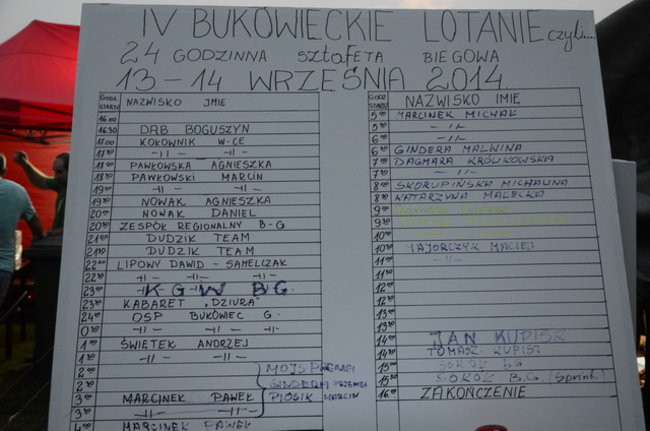 IV BUKOWIECKIE LOTANIE czyli....
24 GODZINNA SZTAFETA BIEGOWA
13-14 WRZEŚNIA 2014
GODZ STARTU NAZWISKO IMIĘ
16.00
16.30 DĄB BOGUSZYN
17.00 KOŁOWNIK W-CE
17.30 -11- -11-
18.00 PAWKOWSKA AGNIESZKA
18.30 PAWKOWSKI MARCIN
19.00 -11- -11-
19.30 NOWAK AGNIESZKA
20.00 NOWAK DANIEL
20.30 ZESPÓŁ REGIONALNY B-G
21.00 DUDZIK TEAM
21.30 DUDZIK TEAM
22.00 LIPOWY DAWID - SAMELCZAK
22.30 -11- -11- -11-
23.00 K G W B G.
23.30 KABARET „DZIURA"
24.00 OSP BUKÓWIEC G.
0.30 -11- -11-
1.00 ŚWIETEK ANDRZEJ
1.30 -11- -11-
2.00
2.30
3.00 MARCINEK PAWEŁ
3.30 -11- -11-
4.00 MARCINEK PAWEŁ
MOJS PRZEMEK
GINDERA PRZEMEK
PIOSIK MARCIN
GODZ STARTU NAZWISKO IMIĘ
5.00 MARCINEK MICHAŁ
5.30 -11-
6.00 -11-
6.30 GINDERA MALWINA
7.00 DAGMARA KRÓLIKOWSKA
7.30 -11-
8.00 SKORUPIŃSKA MICHALINA
8.30 KATARZYNA MAŁECKA
9.00
9.30
10.00
10.30 MACIEJ
11.00 -11-
11.30
12.00
12.30
13.00
13.30
14.00
14.30 JAN KUPISZ
TOMASZ KUPISZ
15.00 SOKÓŁ BG
15.30 SOKÓŁ B.G (Sprint)
16.00 ZAKOŃCZENIE